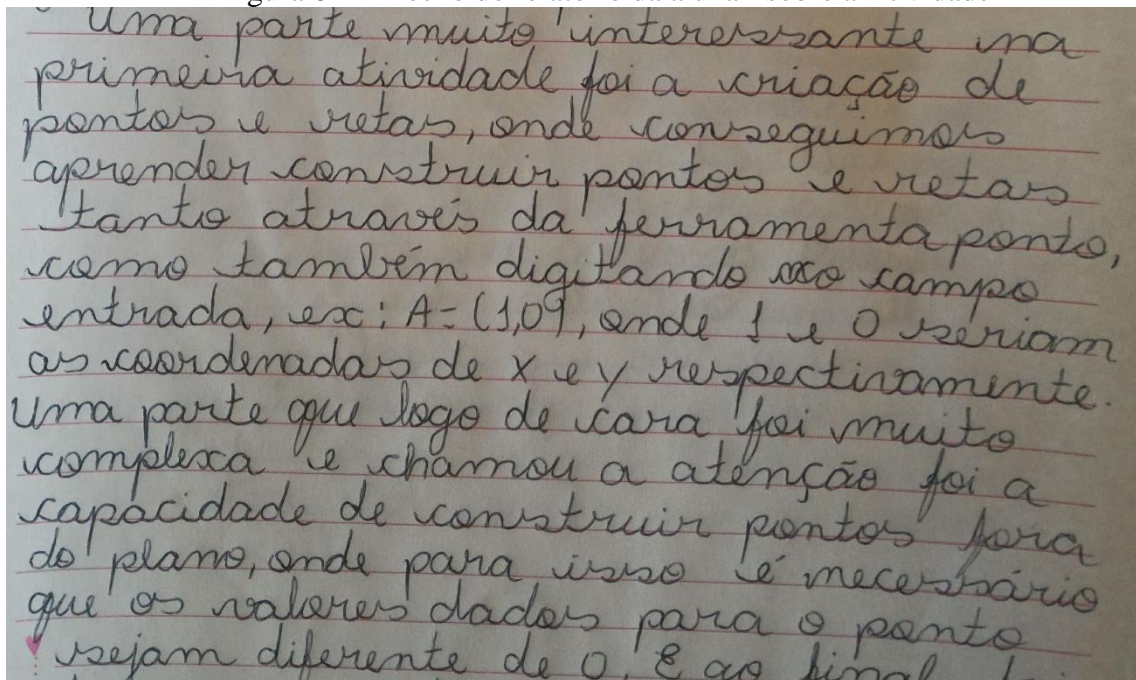 Uma parte muito interessante na
primeira atividade foi a criação de
pontos e retas, onde conseguimos
aprender construir pontos e retas
tanto através da ferramenta ponto,
como também digitando campo
entrada, ex: A=(1,0), onde 1 e 0 seriam
as coordenadas de x e y respectivamente.
Uma parte que logo de cara foi muito
complexa e chamou a atenção foi a
capacidade de construir pontos fora
do plano, onde para isso é necessário
que os valores dados para o ponto
sejam diferente de 0. E ao final